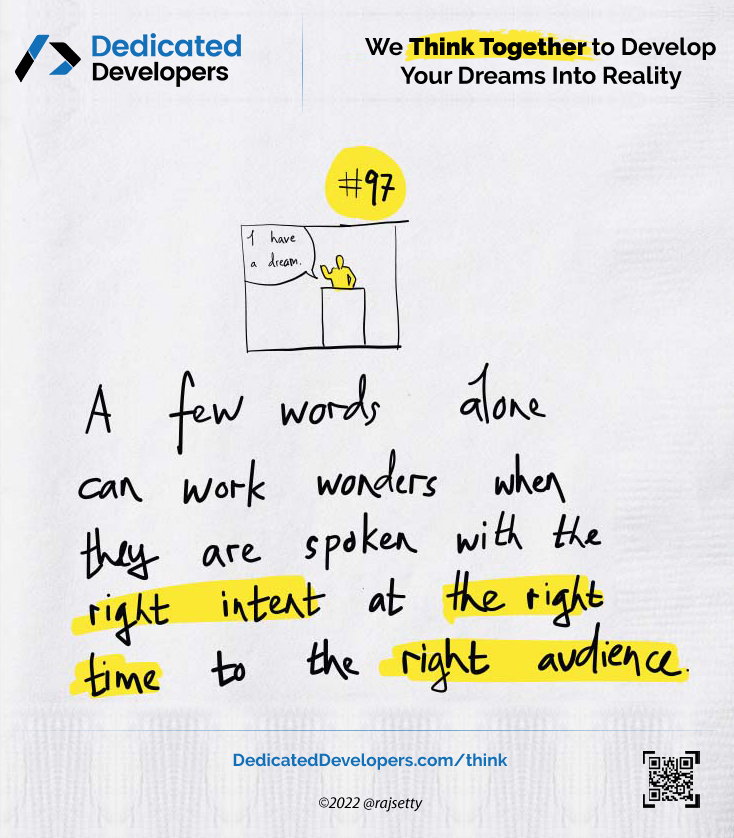 Dedicated
Developers
We Think Together to Develop
Your Dreams Into Reality
#97
I have
a dream.
A few words alone
can work wonders when
they are spoken with the
right intent at the right
time to the right audience.
DedicatedDevelopers.com/think
©2022 @rajsetty